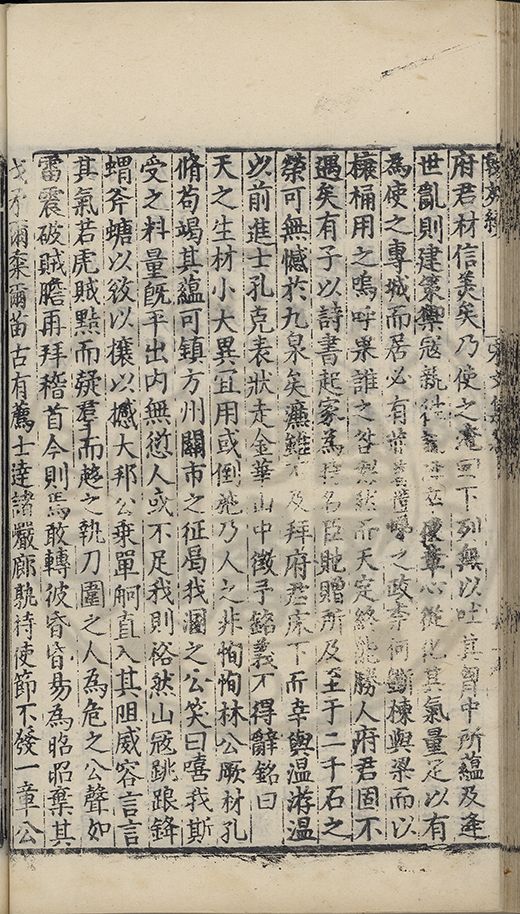 府君材信美矣乃使之淹回下列無以吐其胷中所蘊及逢
世亂則建策禦寇就徒心從也其氣量足以有
為使之專城而居必有之政李何斵棟與梁而以
榱桶用之嗚呼果誰之咎然而天定終能勝人府君固不
遇矣有子以詩書起家為名臣貤贈所及至于二千石之
榮可無憾於九泉矣濂雖不及拜府君床下而幸與温游温
以前進士孔克表狀走金華山中徵予銘義不得辭銘曰
天之生材小大異冝用或倒施乃人之非恂恂林公厥材孔
脩苟竭其蘊可鎮方州關市之征局我之公笑曰嘻我斯
受之料量旣平出内無愆人或不足我則裕然山冦跳踉鋒
蝟斧螗以敓以攘以撼大邦公乗單舸直入其阻威容言言
其氣若虎賊黠而凝羣而趂之執刀圍之人為危之公聲如
雷震破賊膽再拜稽首今則焉敢轉彼昏昏易為昭昭棄其
戈矛爾菑古有薦士達諸嚴廊孰持使節不發一章公